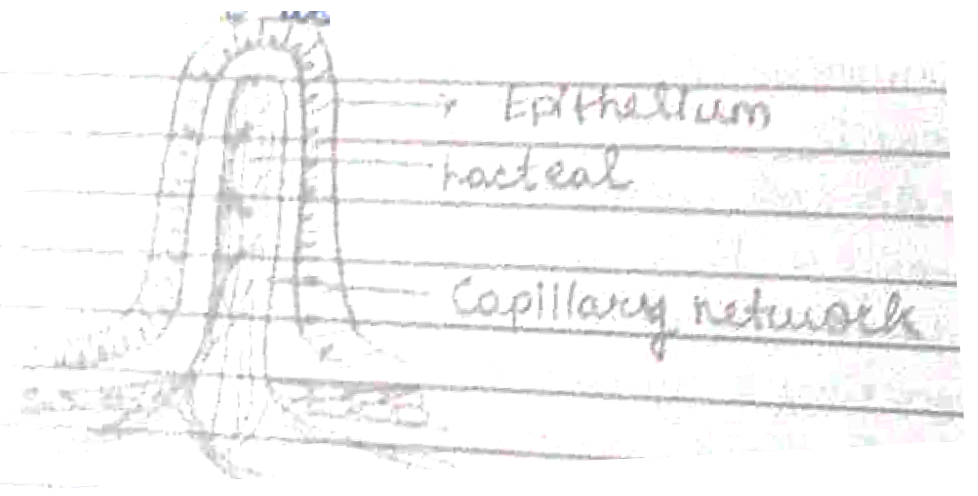 Epithelium
Lacteal
Capillary network